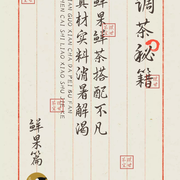 调茶秘籍
鲜果鲜茶搭配不凡
真材实料消暑解渴
XIAN GUO XIAN CHA DA PEI BU FAN
ZHEN CAI SHI LIAO XIAO SHU JIE KE
鲜果篇